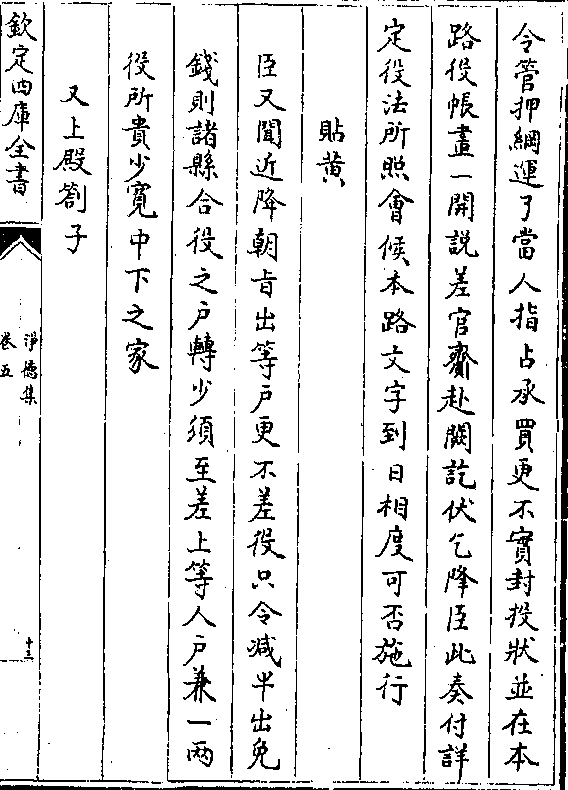 令管押綱運了當人指占承買更不實封投狀並在本
路役帳畫一開說差官齎赴闕訖伏乞降臣此奏付詳
定役法所照會候本路文字到日相度可否施行
貼黄
臣又聞近降朝㫖出等戶更不差役只令減半出免
錢則諸縣合役之戶轉少須至差上等人戶兼一兩
役所貴少寛中下之家
又上殿劄子
欽定四庫全書
淨德集
卷五
十三